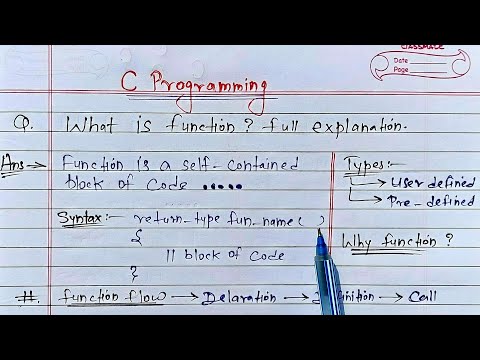 CLASSMATE
Date
Page
C Programming
Q. What is function? full explanation.
Ans:- Function is a self-contained
block of code .....
Syntax:- return-type fun_name( )
{
|| block of code
}
Types:-
User defined
Pre-defined
Why function?
#. function flow → Delaration → Definition → Call